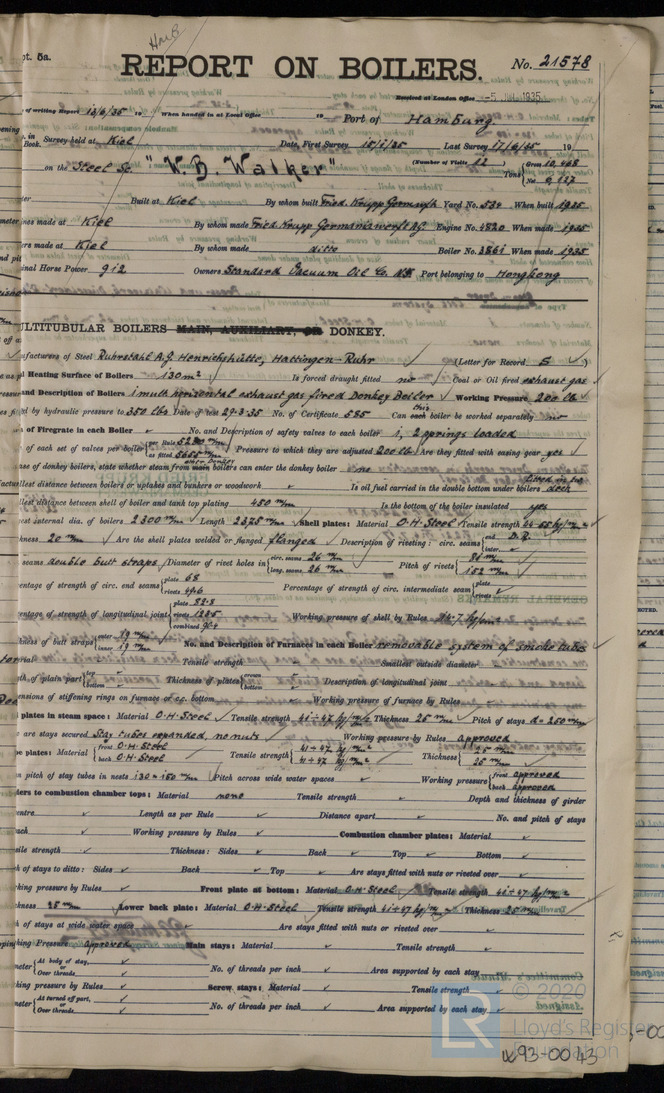 Hmb
pt. 5a.
REPORT ON BOILERS.
No. 21578
Received at London Office -5 JUL 1935
of writing Report 12/6/35 19 When handed in at Local Office 19 Port of Hamburg.
in Book. Survey held at Kiel Date, First Survey 15/2/35 Last Survey 17/6/35 19
on the Steel Sc "W. B. Walker" (Number of Visits 22) Tons Gross 10,468 Net 6,127
Built at Kiel By whom built Fried. Krupp Germ. Yard No. 534 When built 1935
made at Kiel By whom made Fried. Krupp Germaniawerft A.G. Engine No. 4820 When made 1935
made at Kiel By whom made ditto Boiler No. 3861 When made 1935
nal Horse Power 912 Owners Standard Vacuum Oil Co. Port belonging to Hongkong
ULTITUBULAR BOILERS MAIN, AUXILIARY, OR DONKEY.
ufacturers of Steel Ruhrstahl A.G Henrichshütte, Hattingen-Ruhr (Letter for Record S)
Heating Surface of Boilers 130 m² Is forced draught fitted no Coal or Oil fired exhaust gas
and Description of Boilers 1 mult horizontal exhaust gas fired Donkey Boiler Working Pressure 200 lb
by hydraulic pressure to 350 lbs Date of test 29.3.35 No. of Certificate 585 Can each this boiler be worked separately no
of Firegrate in each Boiler No. and Description of safety valves to each boiler 1, 2 springs loaded
of each set of valves per boiler per Rule as fitted Pressure to which they are adjusted 200 lb Are they fitted with easing gear yes
ase of donkey boilers, state whether steam from main boilers can enter the donkey boiler no
llest distance between boilers or uptakes and bunkers or woodwork Is oil fuel carried in the double bottom under boilers
llest distance between shell of boiler and tank top plating 450 m/m Is the bottom of the boiler insulated yes
est internal dia. of boilers 2300 m/m Length 2375 m/m Shell plates: Material O.H. Steel Tensile strength
kness 20 m/m Are the shell plates welded or flanged flanged Description of riveting: circ. seams end D.R. inter.
seams double butt straps Diameter of rivet holes in circ. seams 26 m/m long. seams 26 m/m Pitch of rivets 81 m/m 152 m/m
entage of strength of circ. end seams plate 68 rivets 49.6 Percentage of strength of circ. intermediate seam plate rivets
entage of strength of longitudinal joint plate 82.8 rivets combined Working pressure of shell by Rules
kness of butt straps outer 19 m/m inner 19 m/m No. and Description of Furnaces in each Boiler removable system of smoke tubes
Tensile strength Smallest outside diameter
th of plain part top bottom Thickness of plates crown bottom Description of longitudinal joint
ensions of stiffening rings on furnace or c.c. bottom Working pressure of furnace by Rules
plates in steam space: Material O.H. Steel Tensile strength 41÷47 kg/m/m² Thickness 25 m/m Pitch of stays d = 250 m/m
are stays secured Stay tubes expanded, no nuts Working pressure by Rules approved
plates: Material front O.H. Steel back O.H. Steel Tensile strength 41÷47 kg/m/m² 41÷47 kg/m/m² Thickness 25 m/m 25 m/m
n pitch of stay tubes in nests 130 × 150 m/m Pitch across wide water spaces Working pressure front approved back approved
ders to combustion chamber tops: Material none Tensile strength Depth and thickness of girder
entre Length as per Rule Distance apart No. and pitch of stays
ach Working pressure by Rules Combustion chamber plates: Material
sile strength Thickness: Sides Back Top Bottom
h of stays to ditto: Sides Back Top Are stays fitted with nuts or riveted over
king pressure by Rules Front plate at bottom: Material O.H. Steel Tensile strength 41÷47 kg/m/m²
kness 25 m/m Lower back plate: Material O.H. Steel Tensile strength 41÷47 kg/m/m² Thickness 25 m/m
h of stays at wide water space Are stays fitted with nuts or riveted over
king Pressure approved Main stays: Material Tensile strength
meter At body of stay, or Over threads No. of threads per inch Area supported by each stay
king pressure by Rules Screw stays: Material Tensile strength
meter At turned off part, or Over threads No. of threads per inch Area supported by each stay
LR
© 2020
Lloyd's Register
Foundation
W93-0043